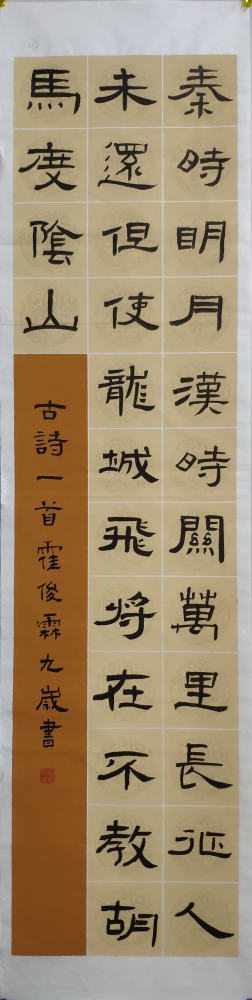 秦時明月漢時關萬里長征人
未還但使龍城飛將在不教胡
馬度陰山
古詩一首霍俊霖九歲書